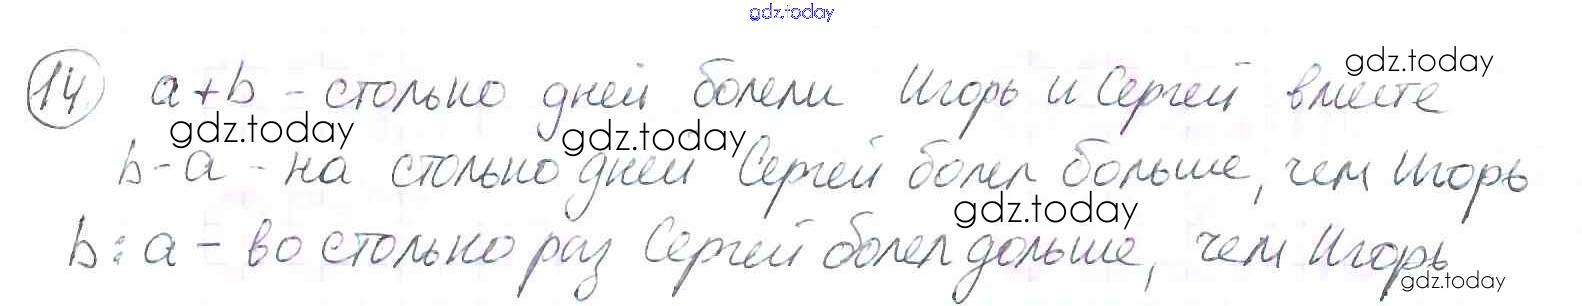 gdz.today
14 a+b - столько дней болели Игорь и Сергей вместе
gdz.today
gdz.today gdz.today
b-a - на столько дней Сергей болел больше, чем Игорь
gdz.today
b:a - во столько раз Сергей болел дольше, чем Игорь
gdz.today